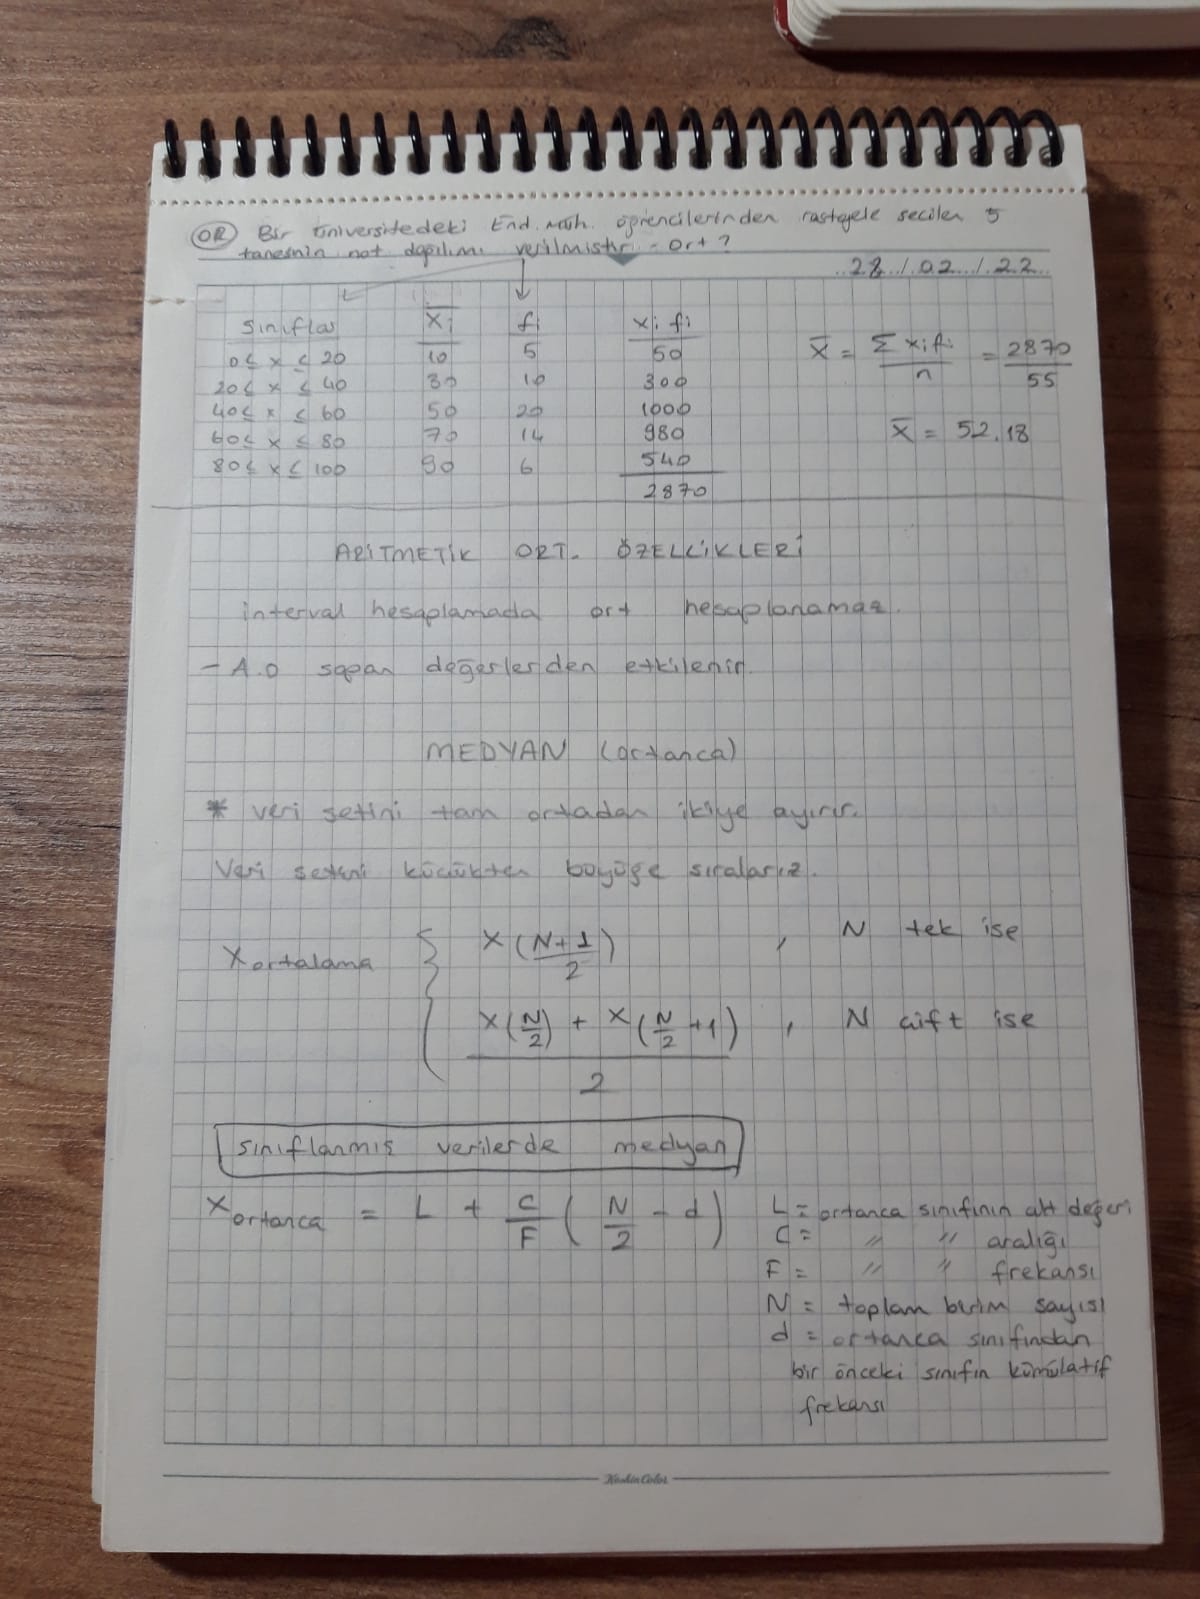 ÖR Bir üniversitedeki End. Müh. öğrencilerinden rastgele seçilen 5
tanesinin not dağılımı verilmiştir. Ort?
28/02/22
Sınıflar xi fi xi fi
0≤ x ≤ 20 10 5 50
20≤ x ≤ 40 30 10 300
40≤ x ≤ 60 50 20 1000
60≤ x ≤ 80 70 14 980
80≤ x ≤ 100 90 6 540
2870
x̄ = Σ xi fi / n = 2870 / 55
x̄ = 52.18
ARİTMETİK ORT. ÖZELLİKLERİ
interval hesaplamada ort hesaplanamaz.
- A.O sapan değerlerden etkilenir.
MEDYAN (ortanca)
* veri setini tam ortadan ikiye ayırır.
Veri setini küçükten büyüğe sıralarız.
Xortalama { X((N+1)/2) , N tek ise
(X(N/2) + X(N/2 +1)) / 2 , N çift ise
Sınıflanmış verilerde medyan
Xortanca = L + C/F (N/2 - d)
L = ortanca sınıfının alt değeri
C = " " aralığı
F = " " frekansı
N = toplam birim sayısı
d = ortanca sınıfından
bir önceki sınıfın kümülatif
frekansı
KeskinColor